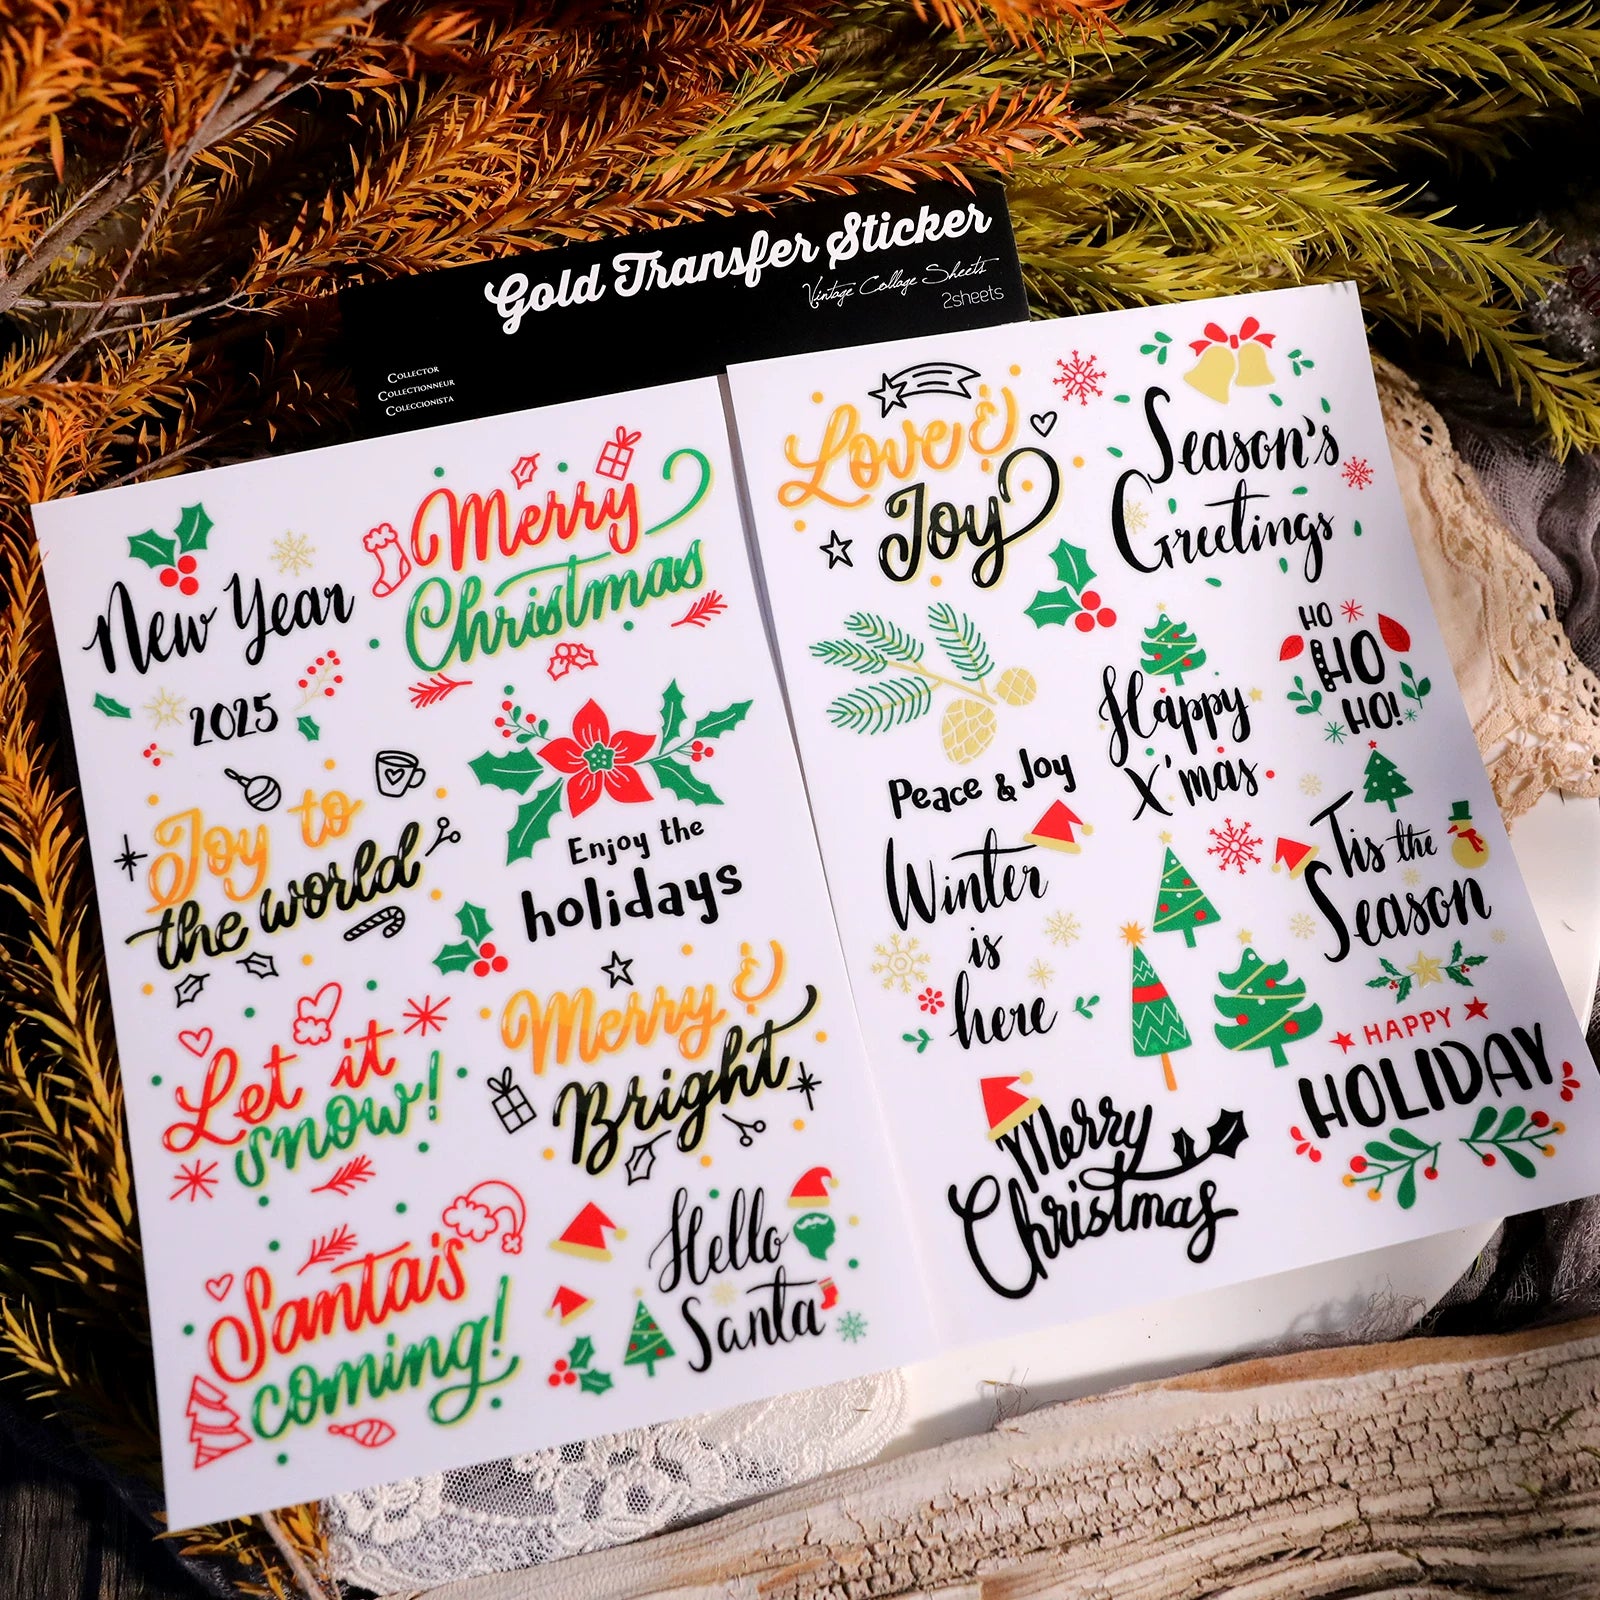 Gold Transfer Sticker
Vintage Collage Sheets
2sheets
Collector
Collectionneur
Coleccionista
New Year
2025
Merry
Christmas
Joy to
the world
Enjoy the
holidays
Let it
snow!
Merry &
Bright
Santa's
coming!
Hello
Santa
Love &
Joy
Season's
Greetings
Peace & Joy
Happy
X'mas
HO
HO
HO!
Winter
is
here
Tis the
Season
Merry
Christmas
HAPPY
HOLIDAY